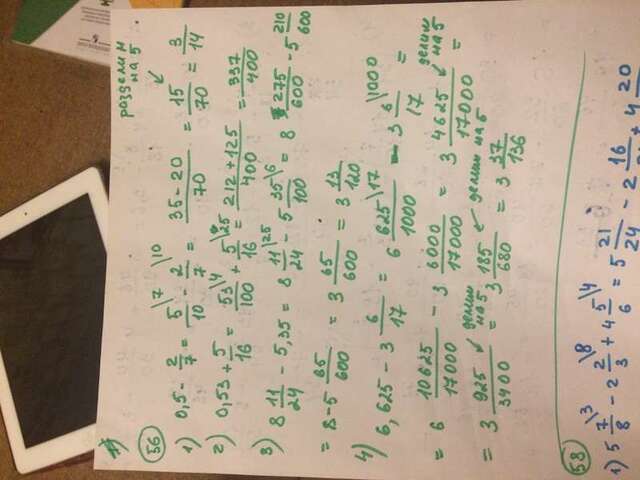 разделим
на 5
56
1) 0,5 - 2/7 = 5/10 \7 - 2/7 \10 = 35 - 20/70 = 15/70 = 3/14
2) 0,53 + 5/16 = 53/100 \4 + 5/16 \25 = 212 + 125/400 = 337/400
3) 8 11/24 - 5,35 = 8 11/24 \25 - 5 35/100 \6 = 8 275/600 - 5 210/600
= 8 - 5 65/600 = 3 65/600 = 3 13/120
4) 6,625 - 3 6/17 = 6 625/1000 \17 - 3 6/17 \1000 =
= 6 10625/17000 - 3 6000/17000 = 3 4625/17000 делим на 5 =
= 3 925/3400 делим на 5 = 3 185/680 делим на 5 = 3 37/136
58
1) 5 7/8 \3 - 2 2/3 \8 + 4 5/6 \4 = 5 21/24 - 2 16 + 4 20